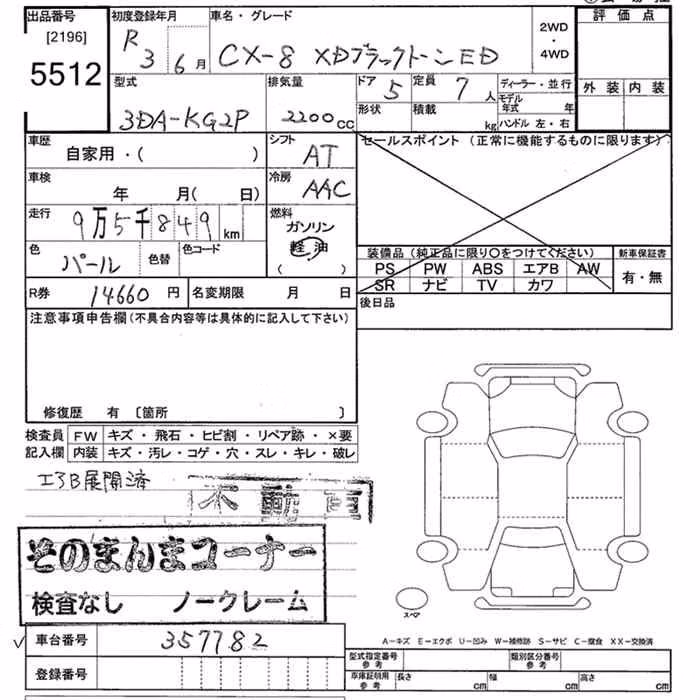 出品番号
[2196]
5512
初度登録年月
R 3 6月
車名・グレード
CX-8 XDブラックトーンED
2WD
・
4WD
評価点
外装 内装
型式
3DA-KG2P
排気量
2200cc
ドア 5
定員 7人
形状
積載 kg
ディーラー・並行
モデル年式 年
ハンドル 左・右
車歴
自家用・( )
シフト
AT
セールスポイント (正常に機能するものに限ります)
車検
年 月( 日)
冷房
AAC
走行
9万5千849km
燃料
ガソリン
軽油
( )
色
パール
色替
色コード
装備品(純正品に限り○をつけてください)
PS PW ABS エアB AW
SR ナビ TV カワ
新車保証書
有・無
R券 14660円
名変期限 月 日
後日品
注意事項申告欄(不具合内容等は具体的に記入して下さい)
修復歴 有 〔箇所 〕
検査員 FW キズ・飛石・ヒビ割・リペア跡・×要
記入欄 内装 キズ・汚レ・コゲ・穴・スレ・キレ・破レ
エアB展開済
不動車
そのまんまコーナー
検査なし ノークレーム
スペア
✓ 車台番号 357782
登録番号
A−キズ E−エクボ U−凹み W−補修跡 S−サビ C−腐食 XX−交換済
型式指定番号 参考
類別区分番号 参考
車庫証明用 参考
長さ cm 幅 cm 高さ cm